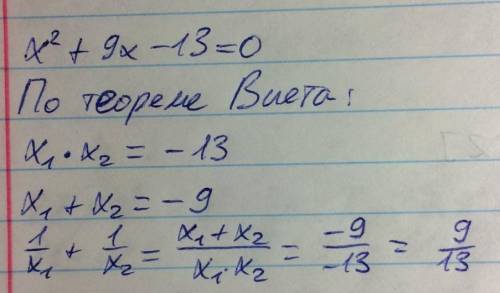 x² + 9x - 13 = 0
По теореме Виета:
x₁ · x₂ = -13
x₁ + x₂ = -9
1/x₁ + 1/x₂ = (x₁ + x₂)/(x₁ · x₂) = -9/-13 = 9/13